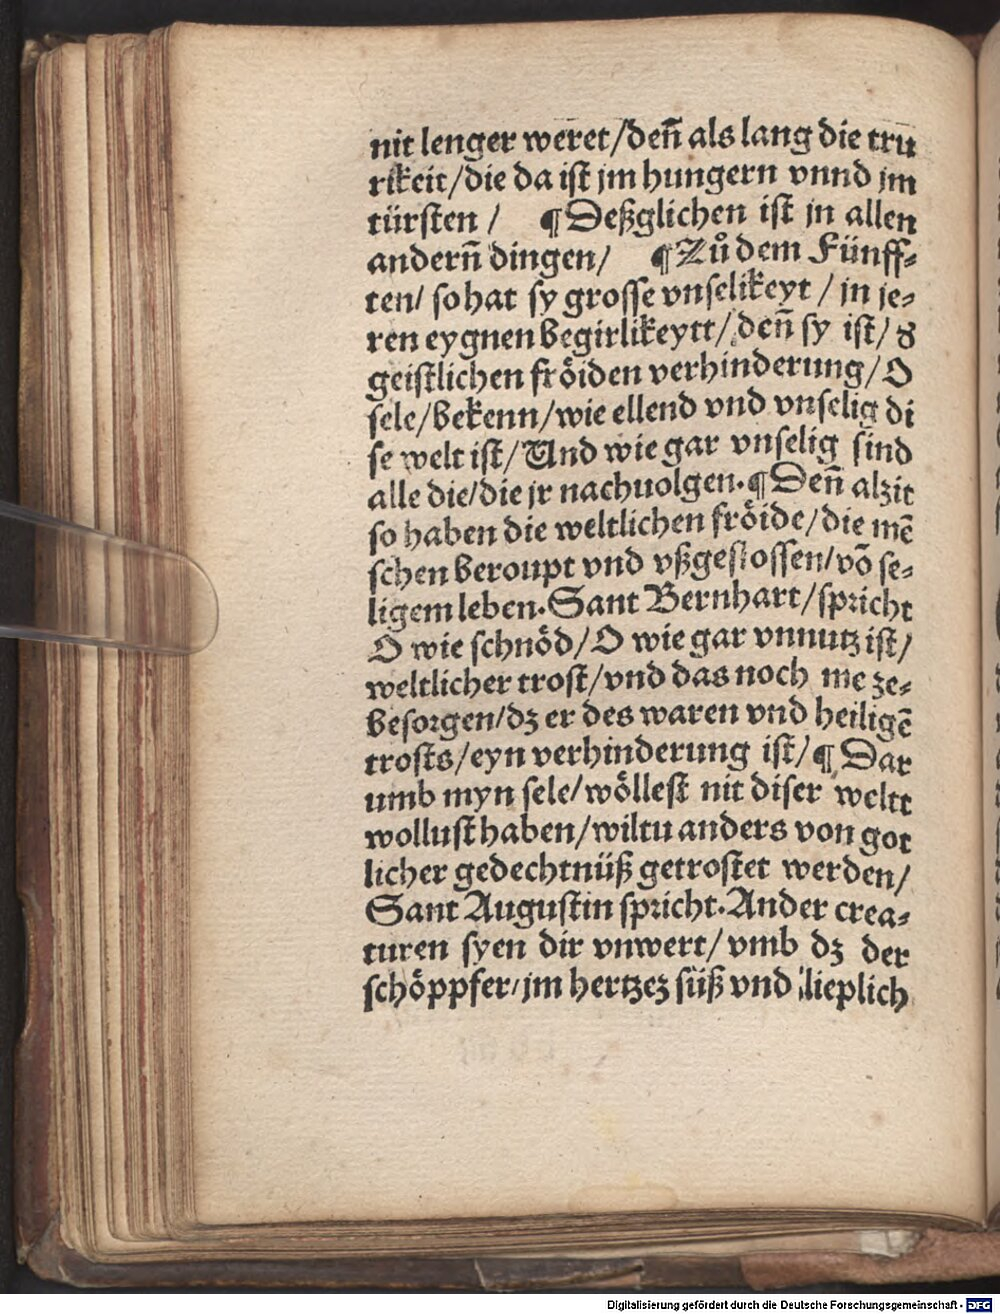 nit lenger weret/deñ als lang die tru
rikeit/die da ist jm hungern vnnd jm
türsten / ¶ Deßglichen ist jn allen
anderñ dingen/ ¶ Zů dem Fünff⸗
ten/ so hat sy grosse vnselikeyt / jn je⸗
ren eygnen begirlikeytt/ deñ sy ist/ d
geistlichen fröiden verhinderung/ O
sele/bekenn/wie ellend vnd vnselig di
se welt ist/ Und wie gar vnselig sind
alle die/die jr nachuolgen. ¶ Deñ alzit
so haben die weltlichen fröide/die mē
schen beroupt vnd vßgestossen/vō se⸗
ligem leben. Sant Bernhart/spricht
O wie schnöd/O wie gar vnnutz ist/
weltlicher trost/vnd das noch me ze⸗
besorgen/dz er des waren vnd heiligē
trosts/eyn verhinderung ist/ ¶ Dar
umb myn sele/wöllest nit diser weltt
wollust haben/wiltu anders von got
licher gedechtnüß getrostet werden/
Sant Augustin spricht. Ander crea⸗
turen syen dir vnwert/ vmb dz der
schöppfer/jm hertzez süß vnd lieplich
Digitalisierung gefördert durch die Deutsche Forschungsgemeinschaft - DFG